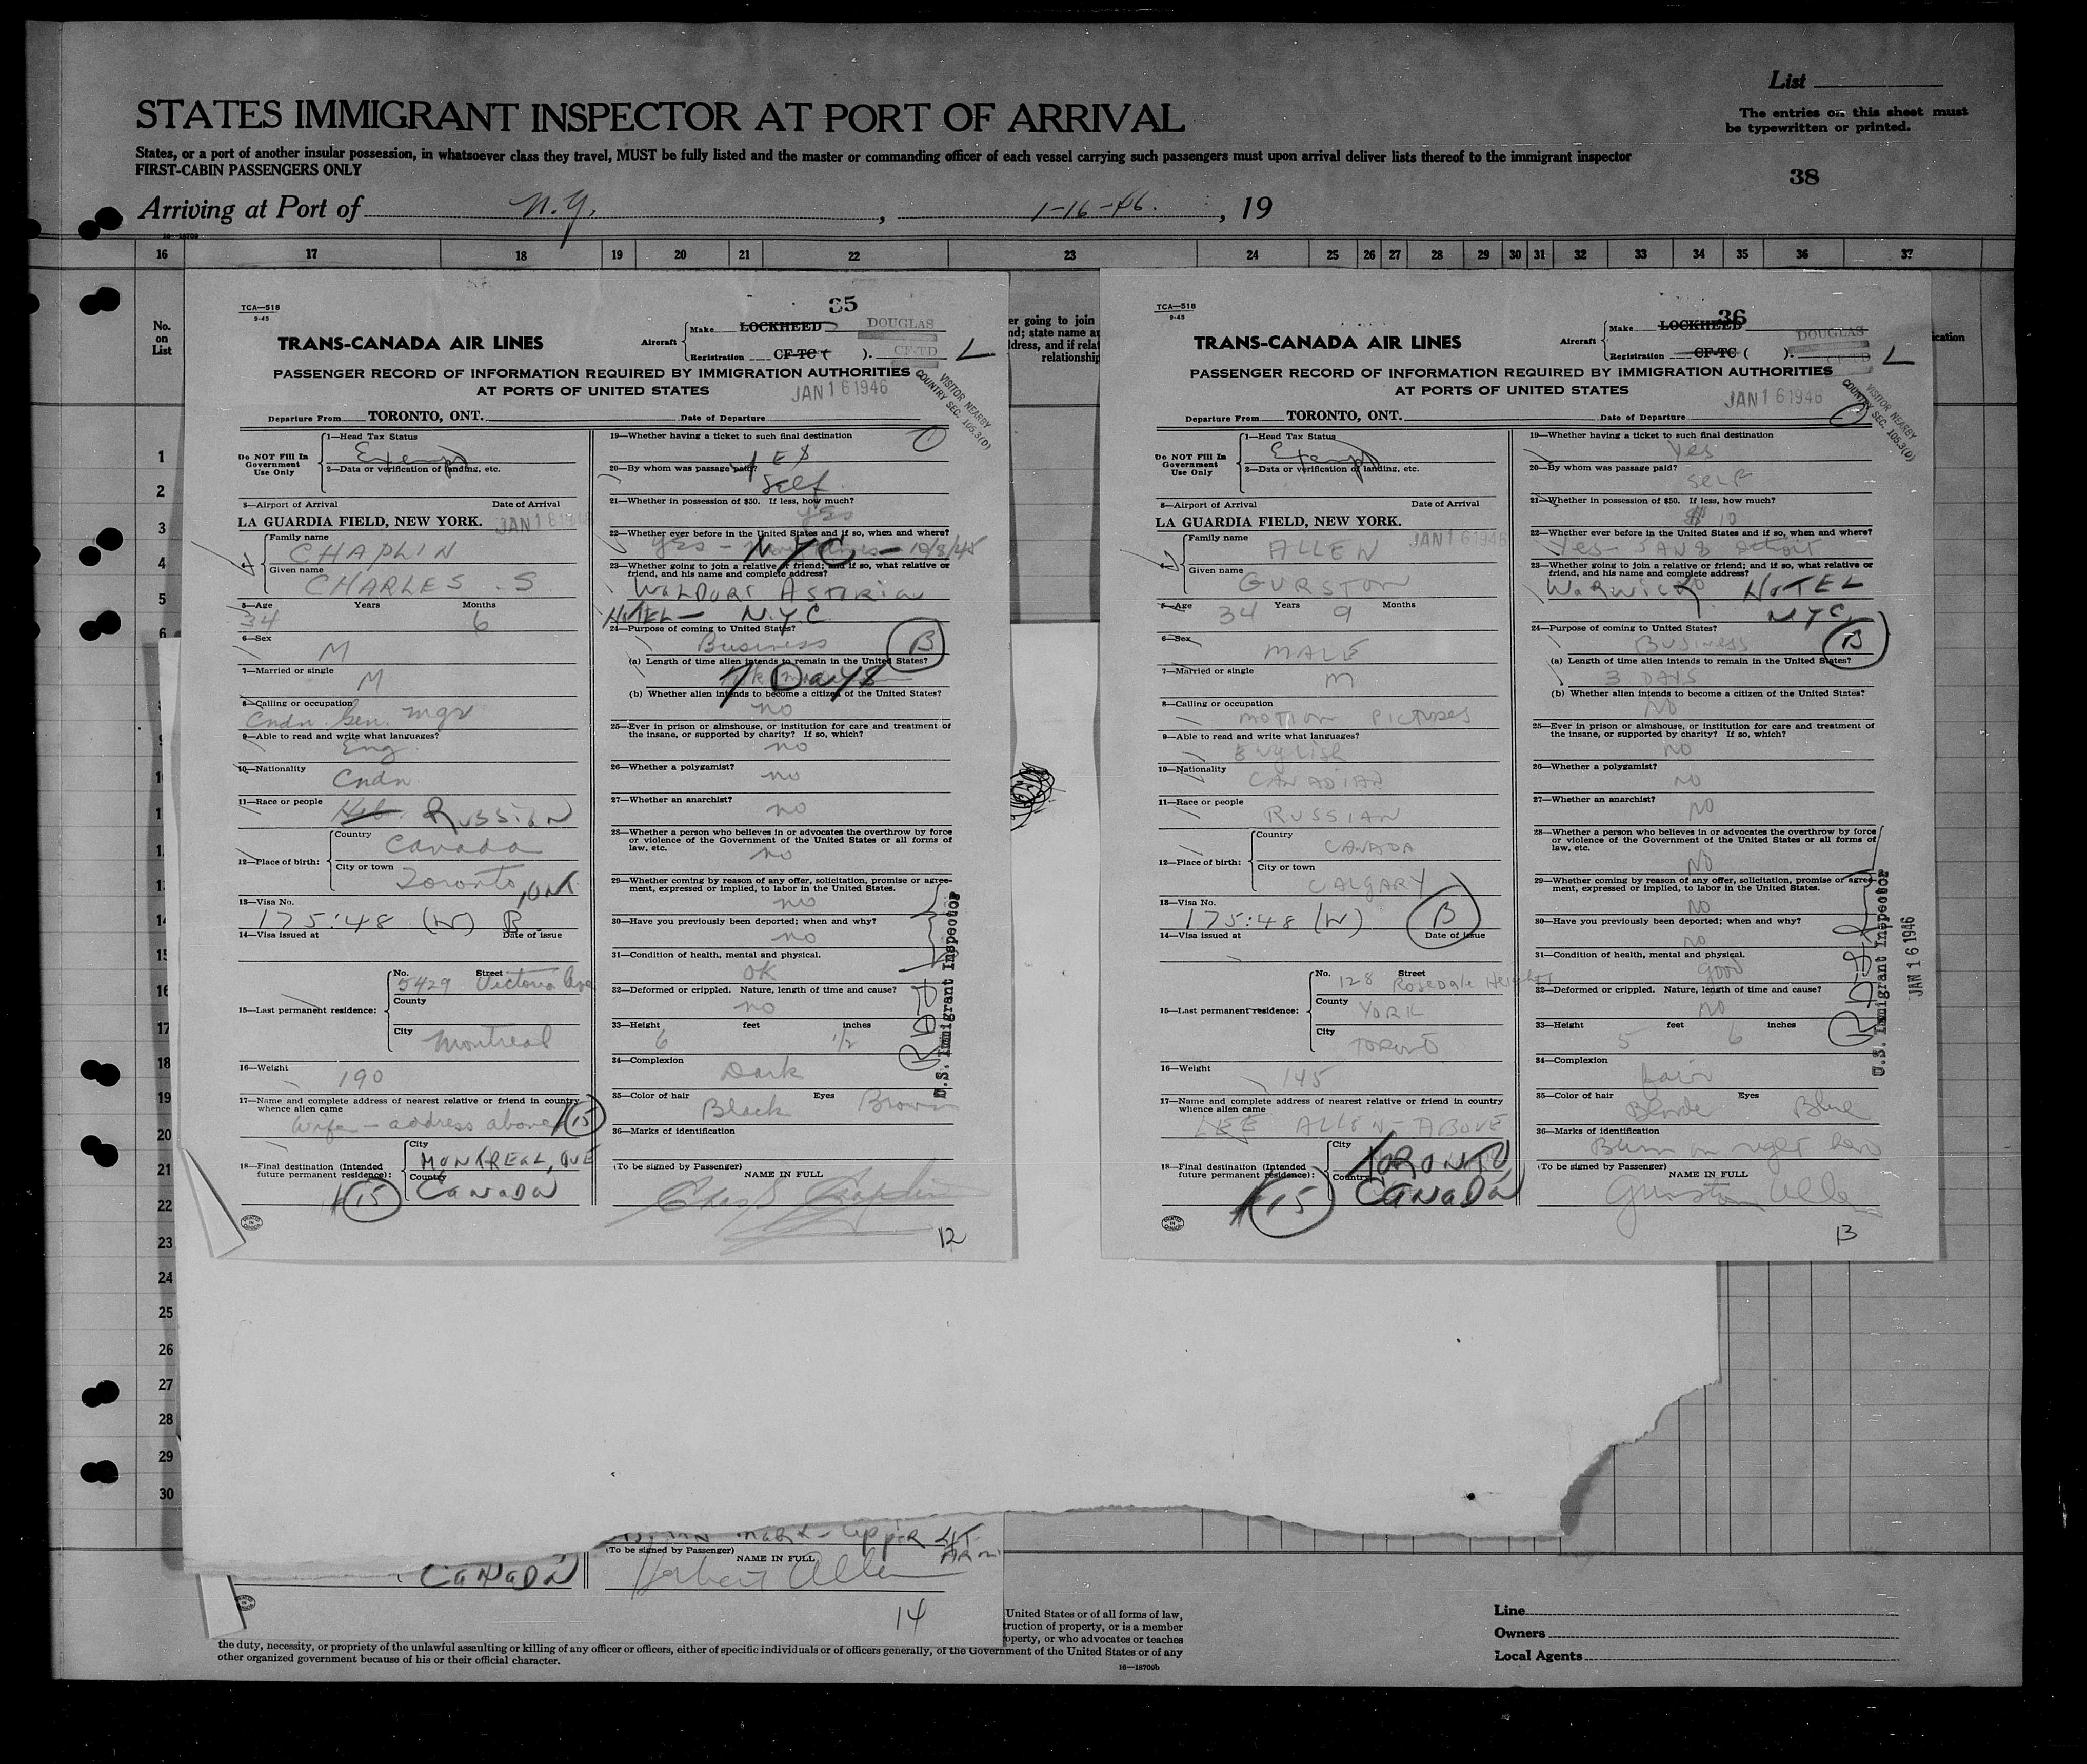 List
STATES IMMIGRANT INSPECTOR AT PORT OF ARRIVAL
The entries on this sheet must
be typewritten or printed.
States, or a port of another insular possession, in whatsoever class they travel, MUST be fully listed and the master or commanding officer of each vessel carrying such passengers must upon arrival deliver lists thereof to the immigrant inspector
FIRST-CABIN PASSENGERS ONLY
38
Arriving at Port of N.Y. , 1-16-46. , 19
16 17 18 19 20 21 22 23 24 25 26 27 28 29 30 31 32 33 34 35 36 37
No.
on
List
TCA—518
9-45
35
TRANS-CANADA AIR LINES
Aircraft
Make LOCKHEED DOUGLAS
Registration CF-TC ( ). CF-TD
PASSENGER RECORD OF INFORMATION REQUIRED BY IMMIGRATION AUTHORITIES
AT PORTS OF UNITED STATES
JAN 16 1946
VISITOR NEARBY
COUNTRY SEC. 105.3(0)
Departure From TORONTO, ONT. Date of Departure
Do NOT Fill In
Government
Use Only
1—Head Tax Status
Exempt
2—Data or verification of landing, etc.
3—Airport of Arrival Date of Arrival
LA GUARDIA FIELD, NEW YORK. JAN 16 1946
4
Family name
CHAPLIN
Given name
CHARLES . S
5—Age Years Months
34 6
6—Sex
M
7—Married or single
M
8—Calling or occupation
Cndn. Gen. mgr
9—Able to read and write what languages?
Eng
10—Nationality
Cndn
11—Race or people
Heb. RUSSIAN
12—Place of birth:
Country
Canada
City or town
Toronto, ONT.
13—Visa No.
175:48 (W) B
14—Visa issued at Date of issue
15—Last permanent residence:
No. Street
5429 Victoria Ave
County
City
Montreal
16—Weight
190
17—Name and complete address of nearest relative or friend in country
whence alien came
Wife - address above 15
18—Final destination (Intended
future permanent residence):
City
MONTREAL, QUE
Country
CANADA
15
19—Whether having a ticket to such final destination
YES
20—By whom was passage paid?
Self
21—Whether in possession of $50. If less, how much?
yes
22—Whether ever before in the United States and if so, when and where?
Yes - NYC - 10/3/45
23—Whether going to join a relative or friend; and if so, what relative or
friend, and his name and complete address?
WALDORF ASTORIA
HOTEL — N.Y.C
24—Purpose of coming to United States?
Business B
(a) Length of time alien intends to remain in the United States?
7 Days
(b) Whether alien intends to become a citizen of the United States?
no
25—Ever in prison or almshouse, or institution for care and treatment of
the insane, or supported by charity? If so, which?
no
26—Whether a polygamist?
no
27—Whether an anarchist?
no
28—Whether a person who believes in or advocates the overthrow by force
or violence of the Government of the United States or all forms of
law, etc.
no
29—Whether coming by reason of any offer, solicitation, promise or agree-
ment, expressed or implied, to labor in the United States.
no
30—Have you previously been deported; when and why?
no
31—Condition of health, mental and physical.
OK
32—Deformed or crippled. Nature, length of time and cause?
no
33—Height feet inches
6 1/2
34—Complexion
Dark
35—Color of hair Eyes
Black Brown
36—Marks of identification
(To be signed by Passenger)
NAME IN FULL
Chas S Chaplin
U.S. Immigrant Inspector
12
er going to join
nd; state name
dress, and if rela
relationship
TCA—518
9-45
36
TRANS-CANADA AIR LINES
Aircraft
Make LOCKHEED DOUGLAS
Registration CF-TC ( ). CF-TD
PASSENGER RECORD OF INFORMATION REQUIRED BY IMMIGRATION AUTHORITIES
AT PORTS OF UNITED STATES
JAN 16 1946
VISITOR NEARBY
COUNTRY SEC. 105.3(0)
Departure From TORONTO, ONT. Date of Departure
Do NOT Fill In
Government
Use Only
1—Head Tax Status
Exempt
2—Data or verification of landing, etc.
3—Airport of Arrival Date of Arrival
LA GUARDIA FIELD, NEW YORK.
JAN 16 1946
4
Family name
ALLEN
Given name
GURSTON
5—Age Years Months
34 9
6—Sex
MALE
7—Married or single
M
8—Calling or occupation
MOTION PICTURES
9—Able to read and write what languages?
English
10—Nationality
CANADIAN
11—Race or people
RUSSIAN
12—Place of birth:
Country
CANADA
City or town
CALGARY
13—Visa No.
175:48 (W) B
14—Visa issued at Date of issue
15—Last permanent residence:
No. Street
128 Rosedale Heights
County
YORK
City
TORONTO
16—Weight
145
17—Name and complete address of nearest relative or friend in country
whence alien came
LEE ALLEN - ABOVE
18—Final destination (Intended
future permanent residence):
City
TORONTO
Country
CANADA
15
19—Whether having a ticket to such final destination
Yes
20—By whom was passage paid?
SELF
21—Whether in possession of $50. If less, how much?
10
22—Whether ever before in the United States and if so, when and where?
Yes - JAN 8 Detroit
23—Whether going to join a relative or friend; and if so, what relative or
friend, and his name and complete address?
Warwick HOTEL
NYC.
24—Purpose of coming to United States?
BUSINESS B
(a) Length of time alien intends to remain in the United States?
3 DAYS
(b) Whether alien intends to become a citizen of the United States?
NO
25—Ever in prison or almshouse, or institution for care and treatment of
the insane, or supported by charity? If so, which?
no
26—Whether a polygamist?
no
27—Whether an anarchist?
NO
28—Whether a person who believes in or advocates the overthrow by force
or violence of the Government of the United States or all forms of
law, etc.
NO
29—Whether coming by reason of any offer, solicitation, promise or agree-
ment, expressed or implied, to labor in the United States.
NO
30—Have you previously been deported; when and why?
no
31—Condition of health, mental and physical.
good
32—Deformed or crippled. Nature, length of time and cause?
no
33—Height feet inches
5 6
34—Complexion
fair
35—Color of hair Eyes
Blonde Blue
36—Marks of identification
(To be signed by Passenger)
NAME IN FULL
Gurston Allen
U.S. Immigrant Inspector
JAN 16 1946
13
ication
1
2
3
4
5
6
8
9
14
15
16
17
18
19
20
21
22
23
24
25
26
27
28
29
30
mark - Upper LFT.
ARM
(To be signed by Passenger)
NAME IN FULL
CANADA
Herbert Allen
14
United States or of all forms of law,
truction of property, or is a member
operty, or who advocates or teaches
the duty, necessity, or propriety of the unlawful assaulting or killing of any officer or officers, either of specific individuals or of officers generally, of the Government of the United States or of any
other organized government because of his or their official character.
16—18709b
Line
Owners
Local Agents